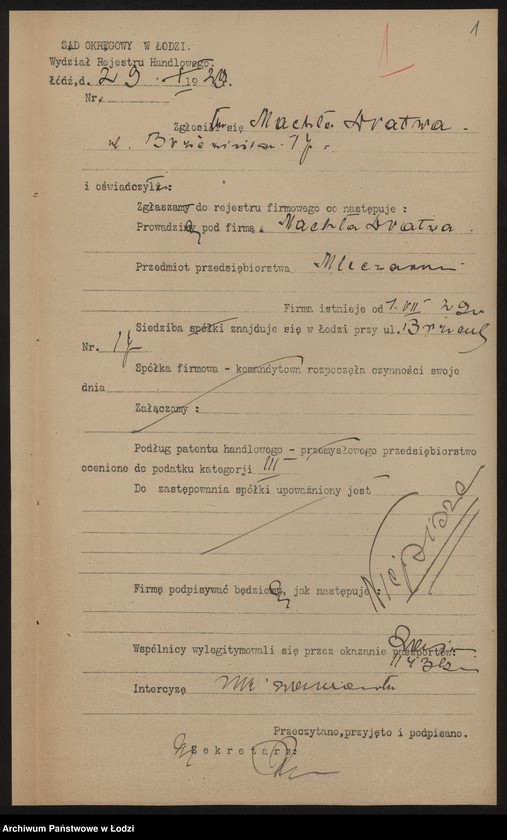 1
1
SĄD OKRĘGOWY W ŁODZI.
Wydział Rejestru Handlowego.
Łódź,d. 29 . X 1929.
Nr.
Zgłosił się Machla Dratwa .
ul. 17
i oświadczył:
Zgłaszamy do rejestru firmowego co następuje :
Prowadzimy pod firmą Machla Dratwa .
Przedmiot przedsiębiorstwa Mleczarnia
Firma istnieje od 1. VII 29
Siedziba spółki znajduje się w Łodzi przy ul.
Nr. 17
Spółka firmowa - komandytowa rozpoczęła czynności swoje
dnia
Załączamy :
Podług patentu handlowego - przemysłowego przedsiębiorstwo
ocenione do podatku kategorji III
Do zastępowania spółki upoważniony jest
Firmę podpisywać będzie jak następuje :
Niepiśm
Wspólnicy wylegitymowali się przez okazanie paszportów:
Intercyzę nie
Przeczytano,przyjęto i podpisano.
Sekretarz:
Archiwum Państwowe w Łodzi